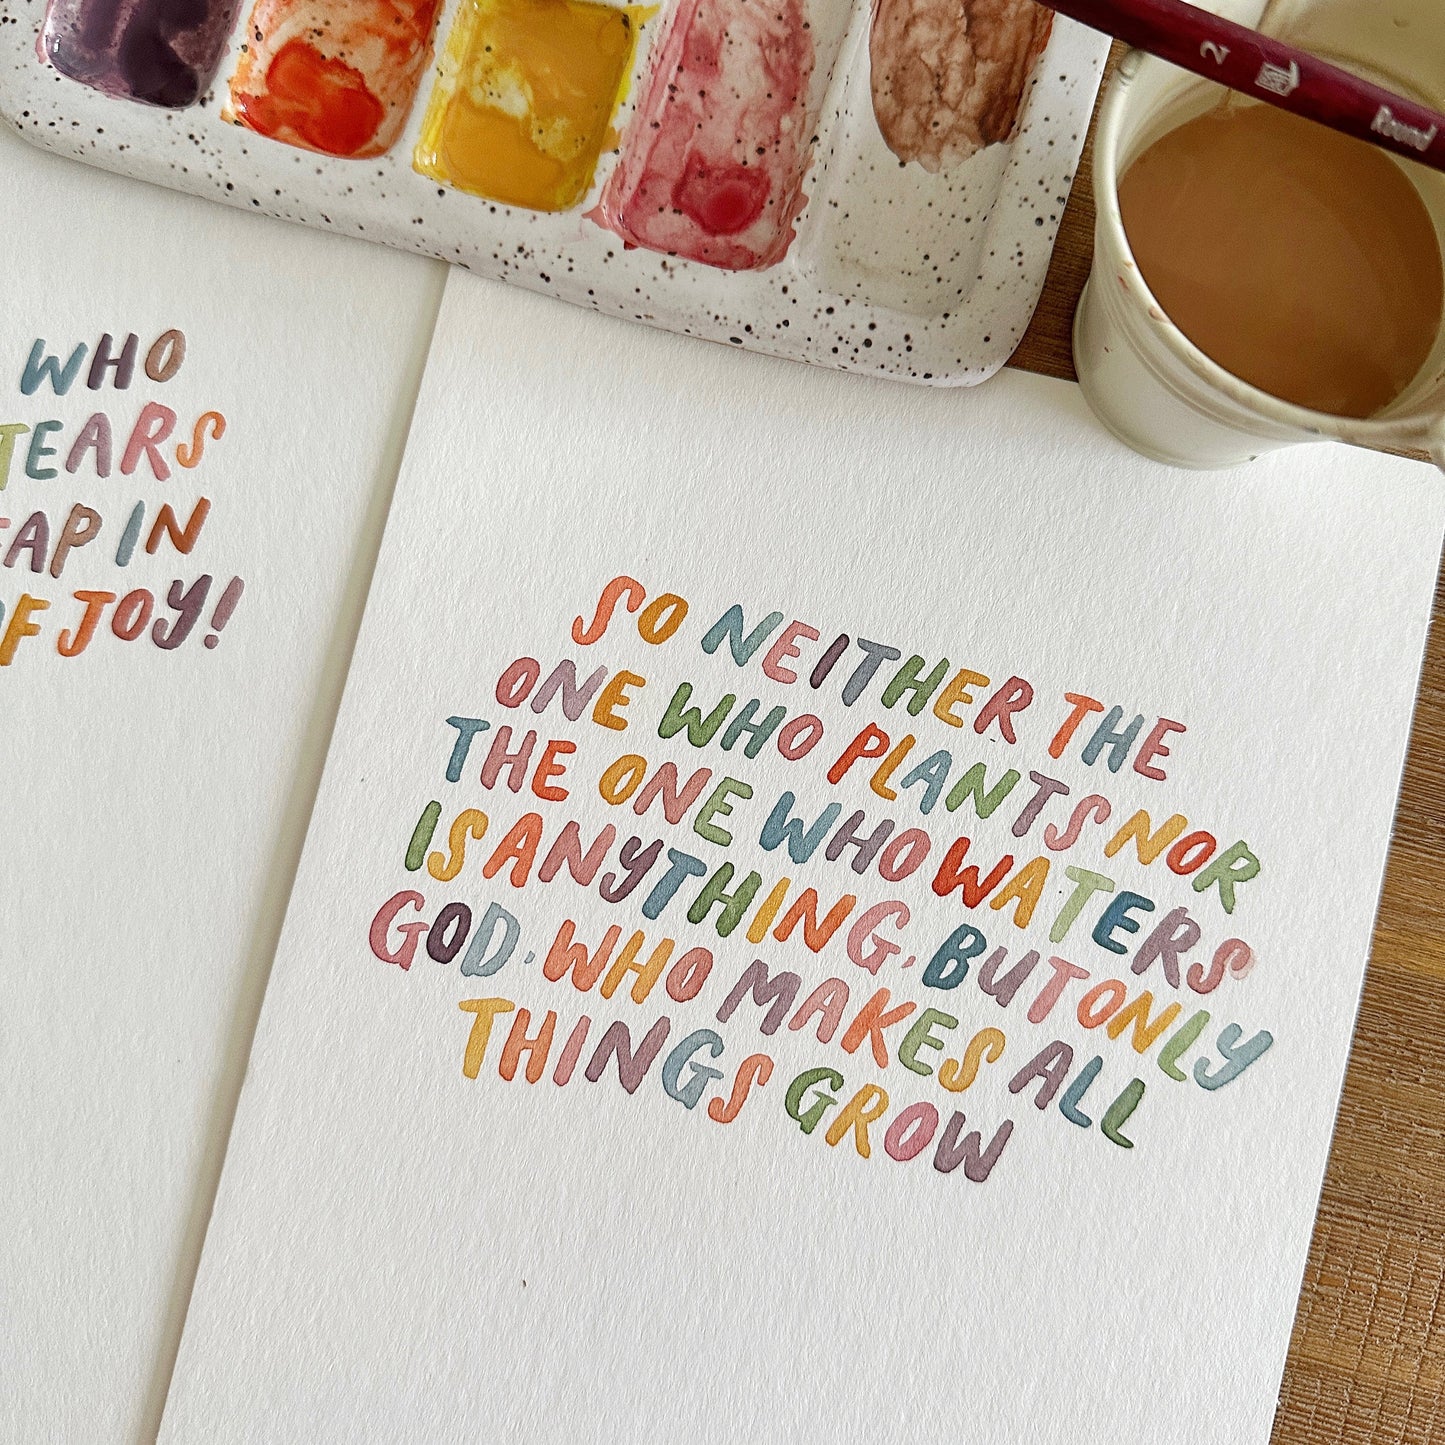 2 Round
WHO
TEARS
EAP IN
OF JOY!
SO NEITHER THE
ONE WHO PLANTS NOR
THE ONE WHO WATERS
IS ANYTHING, BUT ONLY
GOD, WHO MAKES ALL
THINGS GROW